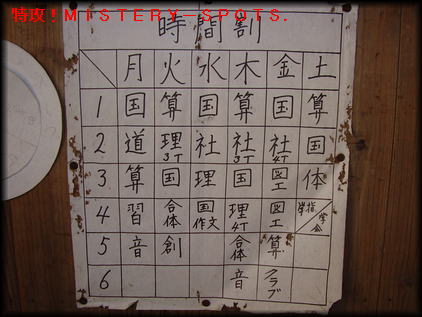 特攻!MISTERY SPOTS.
時間割
月 火 水 木 金 土
1 国 算 国 算 国 算
2 道 理3T 社 社3T 社4T 国
3 算 国 理 国 図工 体
4 習 合体 国作文 理4T 図工 学指 学会
5 音 創 合体 算
6 音 クラブ